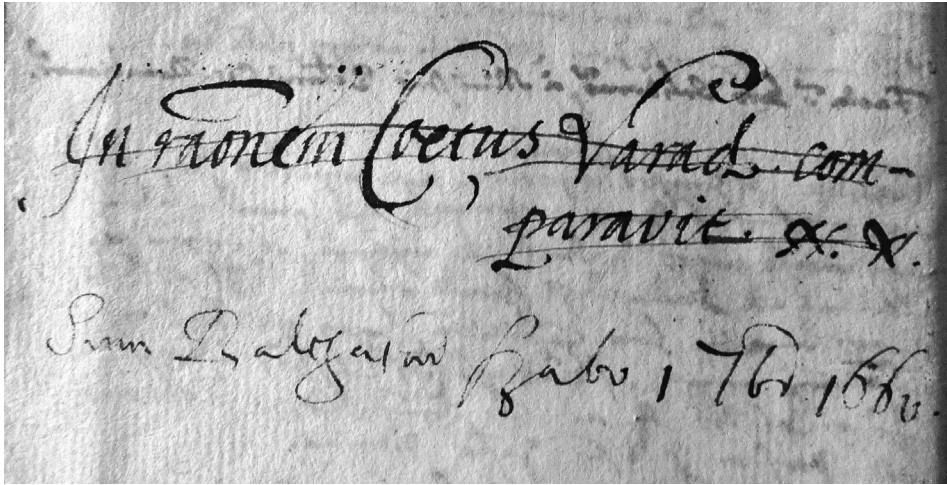 In raōnem Coetus Varad. com-
paravit. X. X.
Sum Balthasaris Szabo 1 7br. 1660.